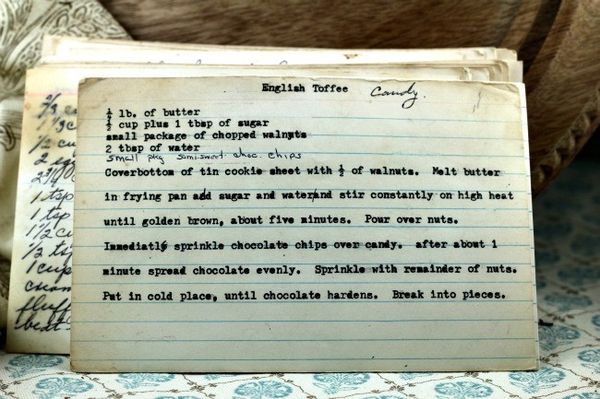 English Toffee Candy.
¼ lb. of butter
½ cup plus 1 tbsp of sugar
small package of chopped walnuts
2 tbsp of water
small pkg semi sweet choc. chips
Coverbottom of tin cookie sheet with ½ of walnuts. Melt butter
in frying pan add sugar and waterand stir constantly on high heat
until golden brown, about five minutes. Pour over nuts.
Immediatly sprinkle chocolate chips over candy. after about 1
minute spread chocolate evenly. Sprinkle with remainder of nuts.
Put in cold place, until chocolate hardens. Break into pieces.
2/3 c
1 1/3 c
1/2 cu
2 eg
2 1/4
1 tsp
1 tsp
1 1/2 cu
1/2 ts
1 cup
fluff
beat